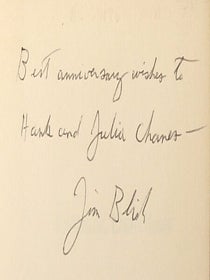 Best anniversary wishes to
Hank and Julia Chanes—
Jim Blish